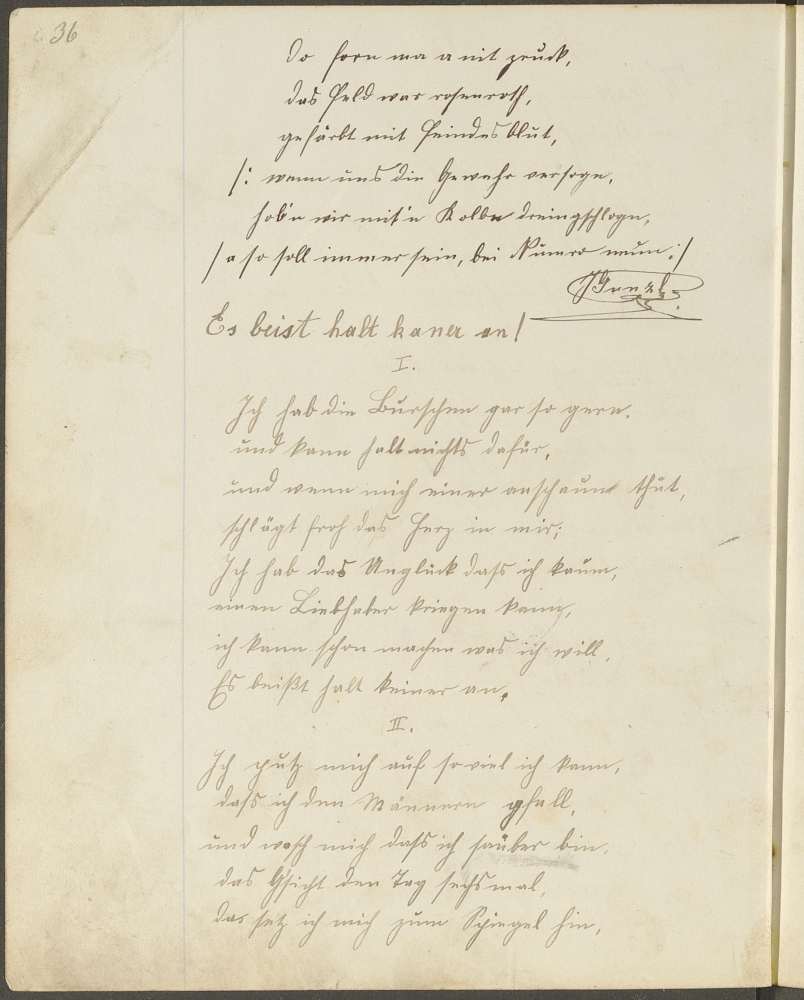 36
Do forn ma a nit zruck,
das Feld war rosenroth,
gefärbt mit Feindesblut,
/: wenn uns die Gewehr versogn,
hob'n wir mit'n Kolbn dreingschlogn,
/a so soll immer sein, bei Numro neun :/
JGanzl
Es beist halt kaner an!
I.
Ich hab die Burschen gar so gern.
und kann halt nichts dafür,
und wenn mich einer anschaun thut,
schlägt froh das Herz in mir;
Ich hab das Unglück daß ich kaum,
einen Liebhaber kriegen kann,
ich kann schon machen was ich will,
Es beißt halt keiner an.
II.
Ich putz mich auf soviel ich kann,
daß ich den Männern gfall,
und wasch mich daß ich sauber bin,
das Gsicht den Tag sechsmal,
das setz ich mich zum Spiegel hin,